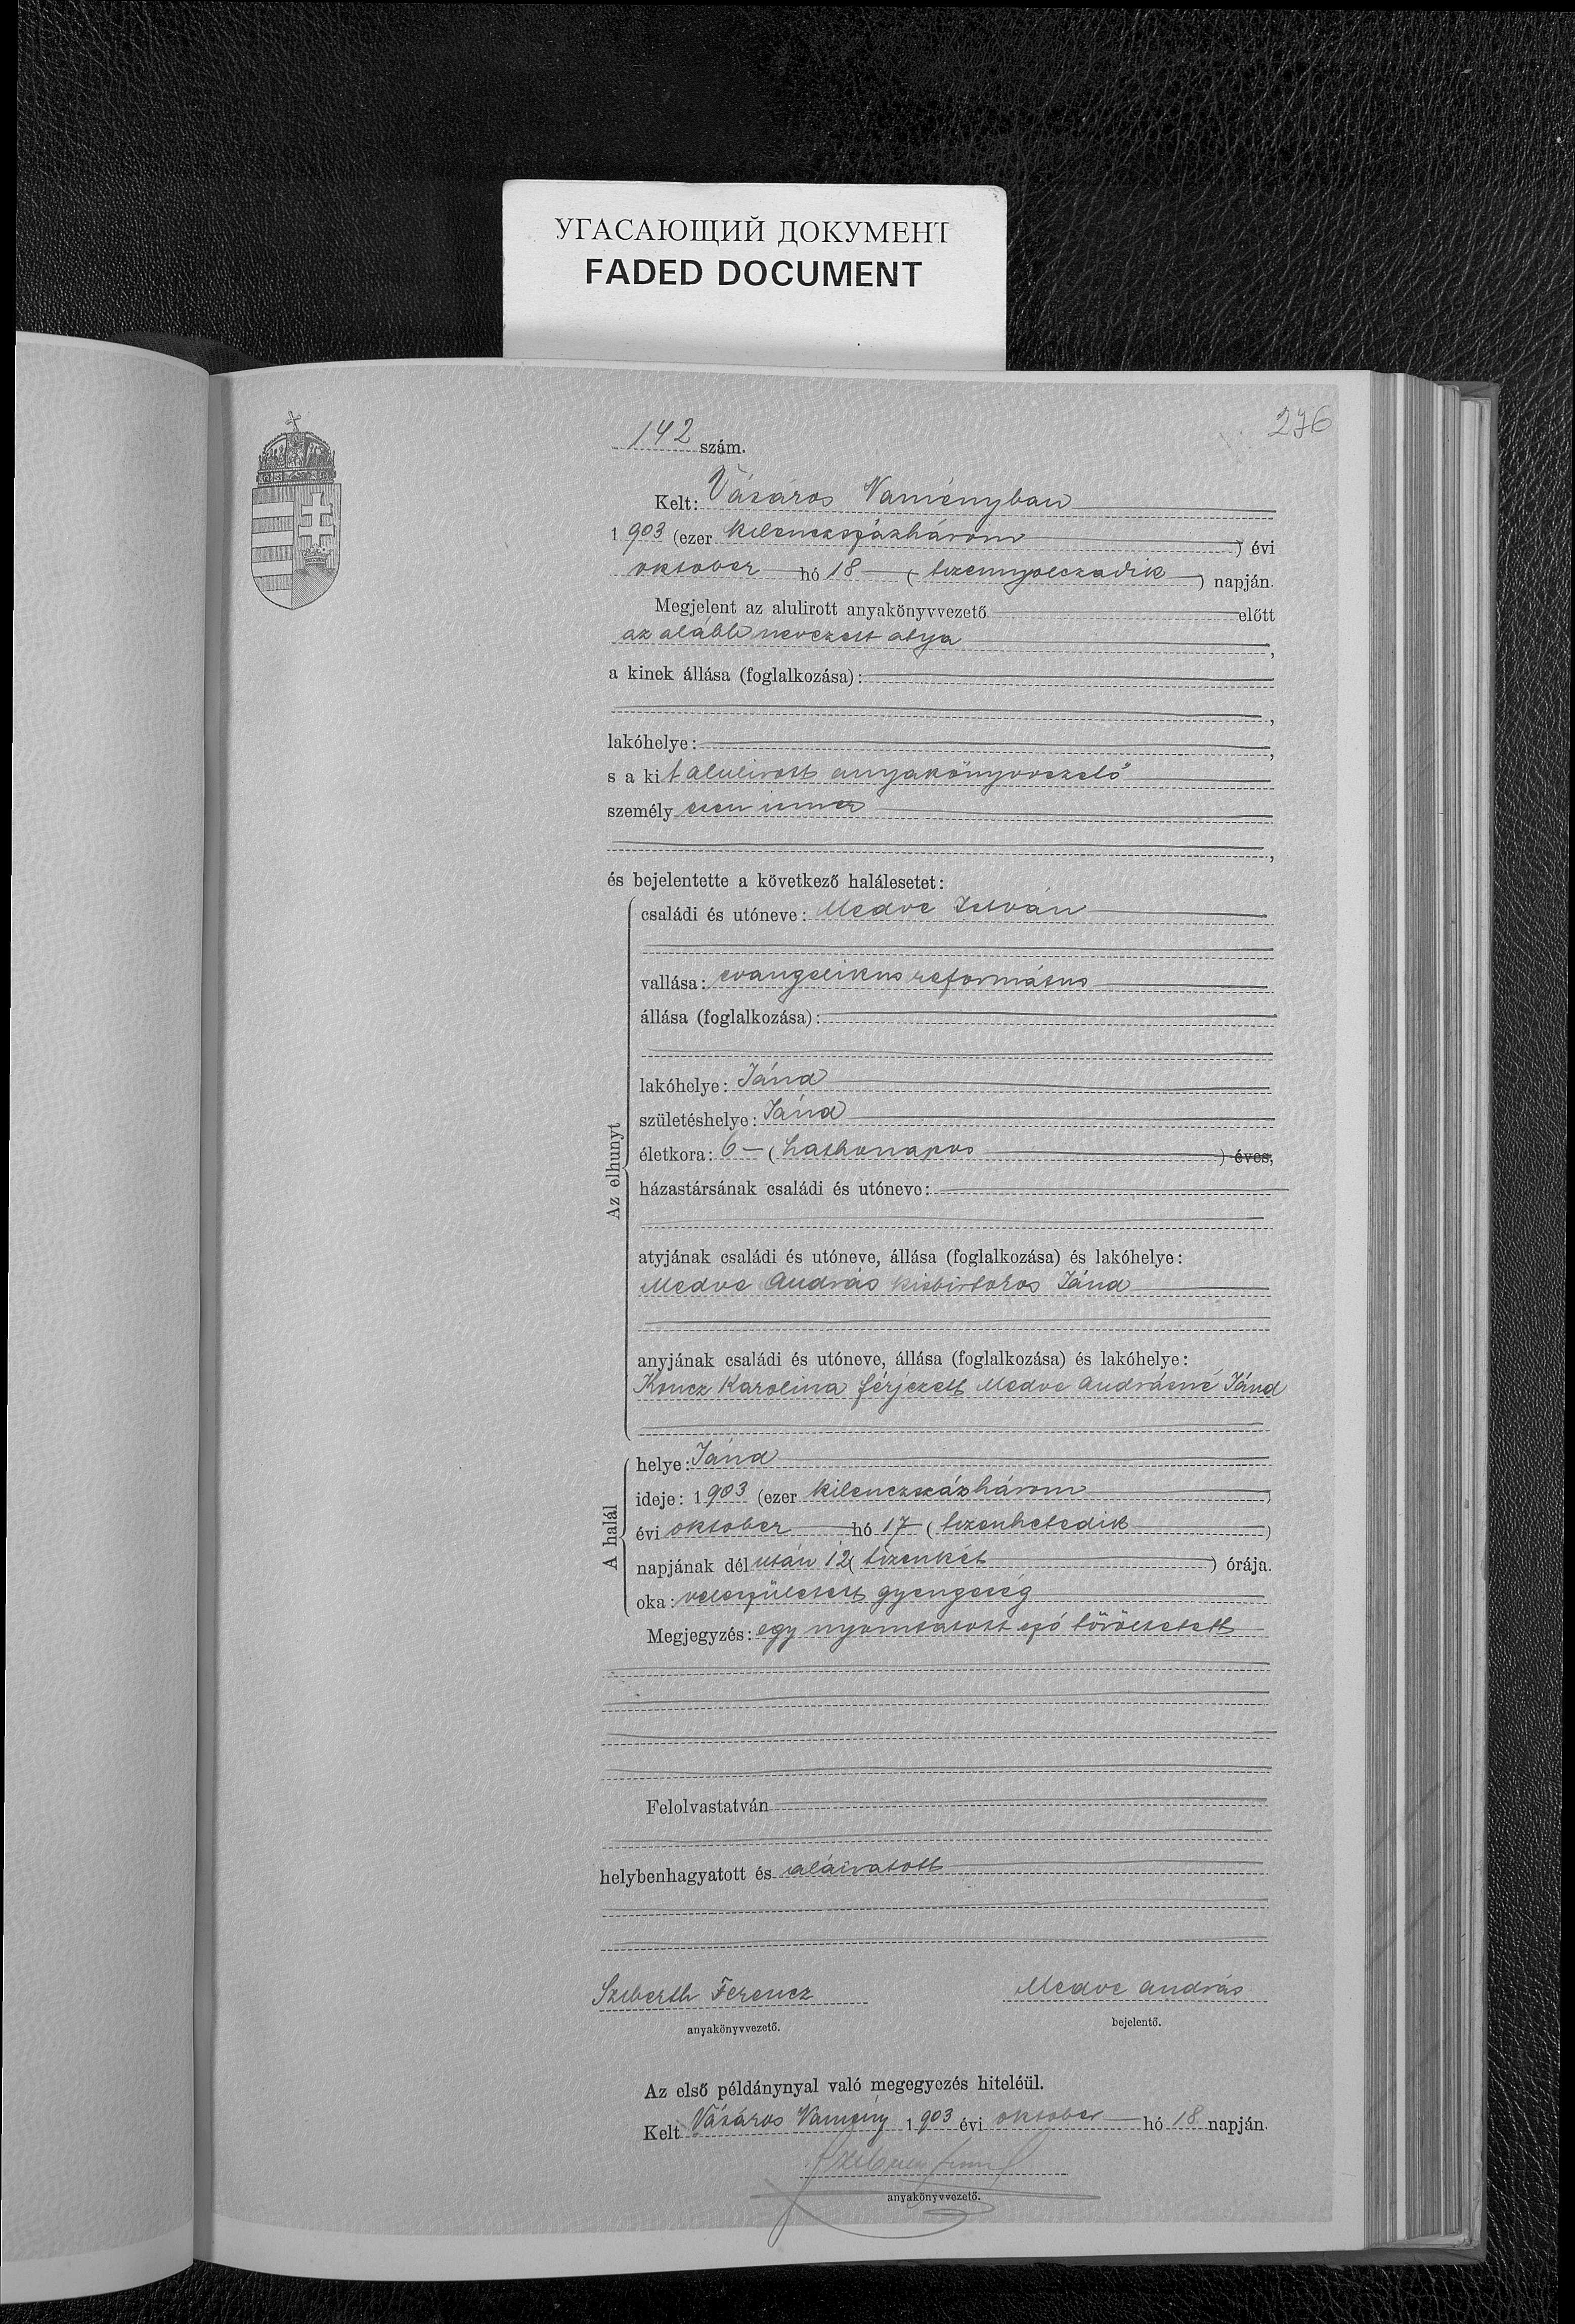 УГАСАЮЩИЙ ДОКУМЕНТ
FADED DOCUMENT
276
142 szám.
Kelt: Vásáros Naményban
1903 (ezer kilenczszázhárom ) évi
oktober hó 18 ( tizennyolczadik ) napján.
Megjelent az alulirott anyakönyvvezető előtt
az alább nevezett atya ,
a kinek állása (foglalkozása):
,
lakóhelye: ,
s a kit alulirott anyakönyvvezető
személyesen ismer
,
és bejelentette a következő halálesetet:
Az elhunyt
családi és utóneve: Medve István
vallása: evangelikus református
állása (foglalkozása):
lakóhelye: Jánd
születéshelye: Jánd
életkora: 6 – ( hathonapos ) éves,
házastársának családi és utóneve:
atyjának családi és utóneve, állása (foglalkozása) és lakóhelye:
Medve András kisbirtokos Jánd
anyjának családi és utóneve, állása (foglalkozása) és lakóhelye:
Koncz Karolina férjezett Medve Andrásné Jánd
A halál
helye: Jánd
ideje: 1903 (ezer kilenczszázhárom )
évi oktober hó 17 ( tizenhetedik )
napjának dél után 12 ( tizenkét ) órája.
oka: veleszületett gyengeség
Megjegyzés: egy nyomtatott szó töröltetett
Felolvastatván
helybenhagyatott és aláiratott
Sziberth Ferencz Medve András
anyakönyvvezető. bejelentő.
Az első példánynyal való megegyezés hiteléül.
Kelt Vásáros Namény 1903 évi oktober hó 18 napján.
anyakönyvvezető.